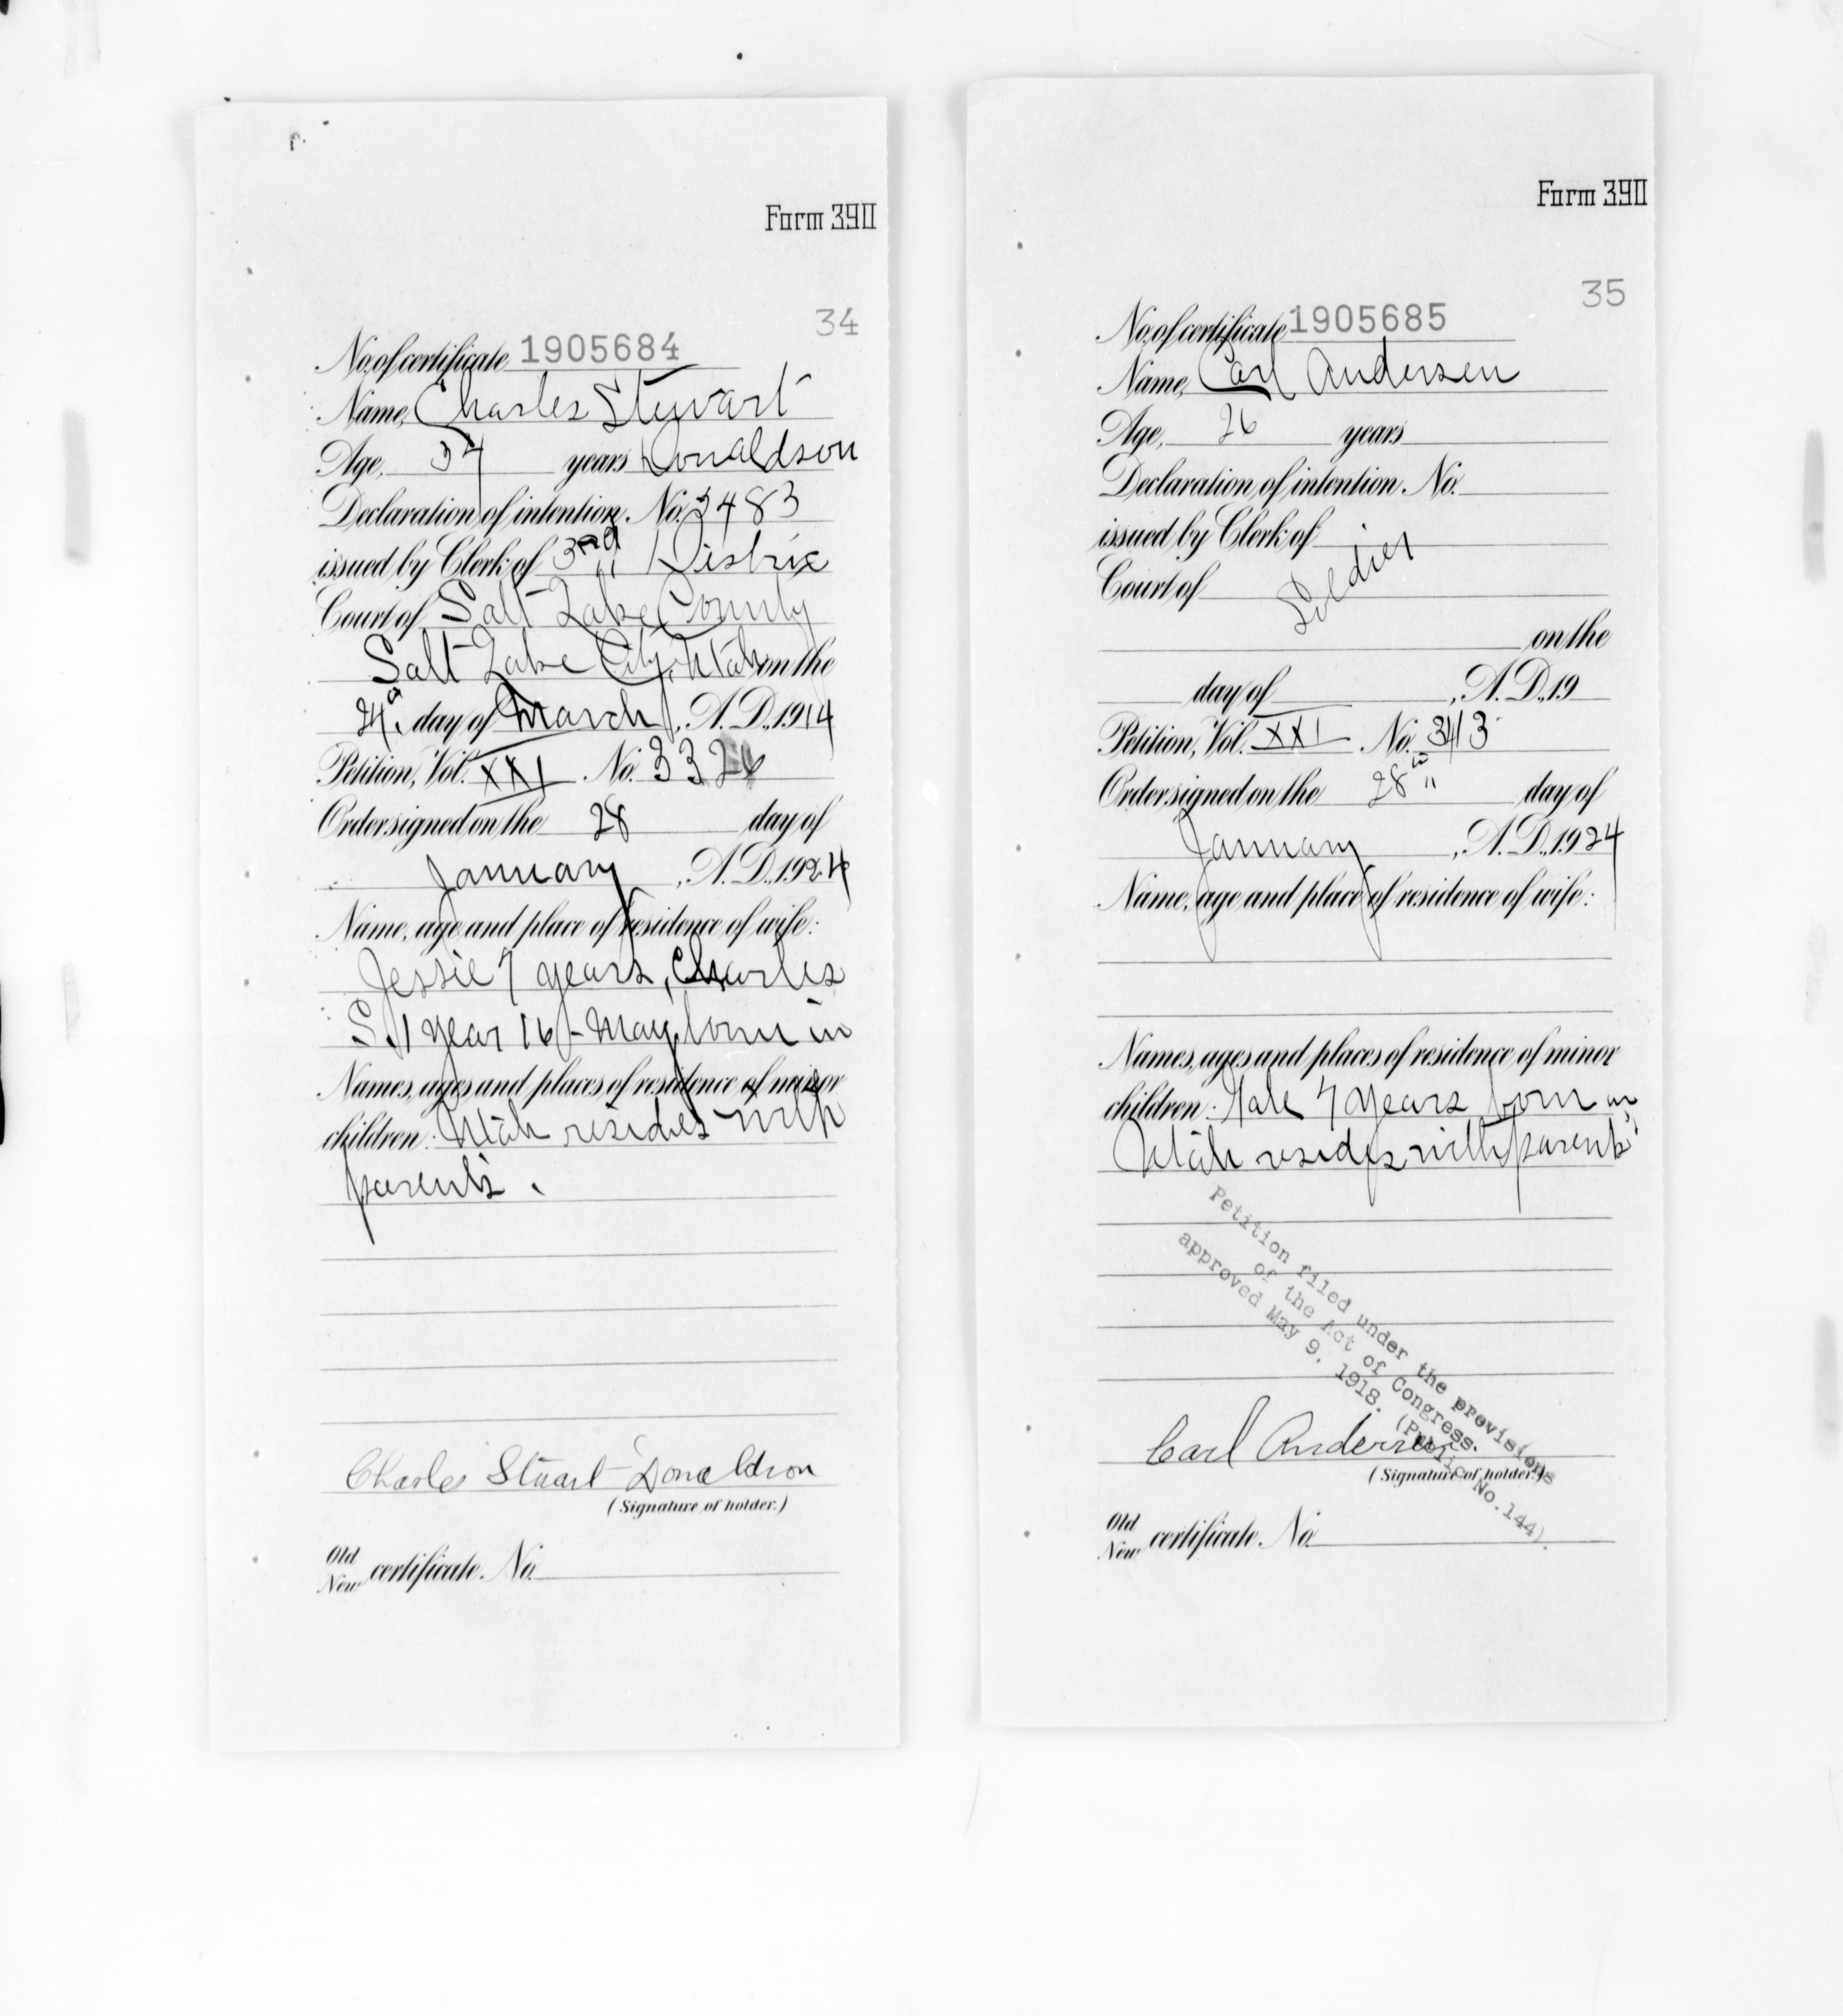 Form 390
34
No. of certificate 1905684
Name, Charles Stewart
Age, 34 years Donaldson
Declaration of intention. No. 3483
issued by Clerk of 3rd Distric
Court of Salt Lake County
Salt Lake City, Utah on the
24" day of March, A.D., 1914
Petition, Vol. XXI No. 3326
Order signed on the 28 day of
January, A.D., 1924
Name, age and place of residence of wife:
Jessie 7 years, Charles
S. 1 year 16- May born in
Names, ages and places of residence of minor
children: Utah resides with
parents.
Charles Stuart Donaldson
(Signature of holder.)
Old
New certificate. No.
Form 390
35
No. of certificate 1905685
Name, Carl Andersen
Age, 26 years
Declaration of intention No.
issued by Clerk of
Court of Soldier
on the
day of , A.D., 19
Petition, Vol. XXI No. 3413
Order signed on the 28th day of
January, A.D., 1924
Name, age and place of residence of wife:
Names, ages and places of residence of minor
children: 7 years born in
Utah resides with parents
Petition filed under the provisions
of the Act of Congress.
approved May 9. 1918. (Public No.144).
Carl Andersen
(Signature of holder.)
Old
New certificate. No.